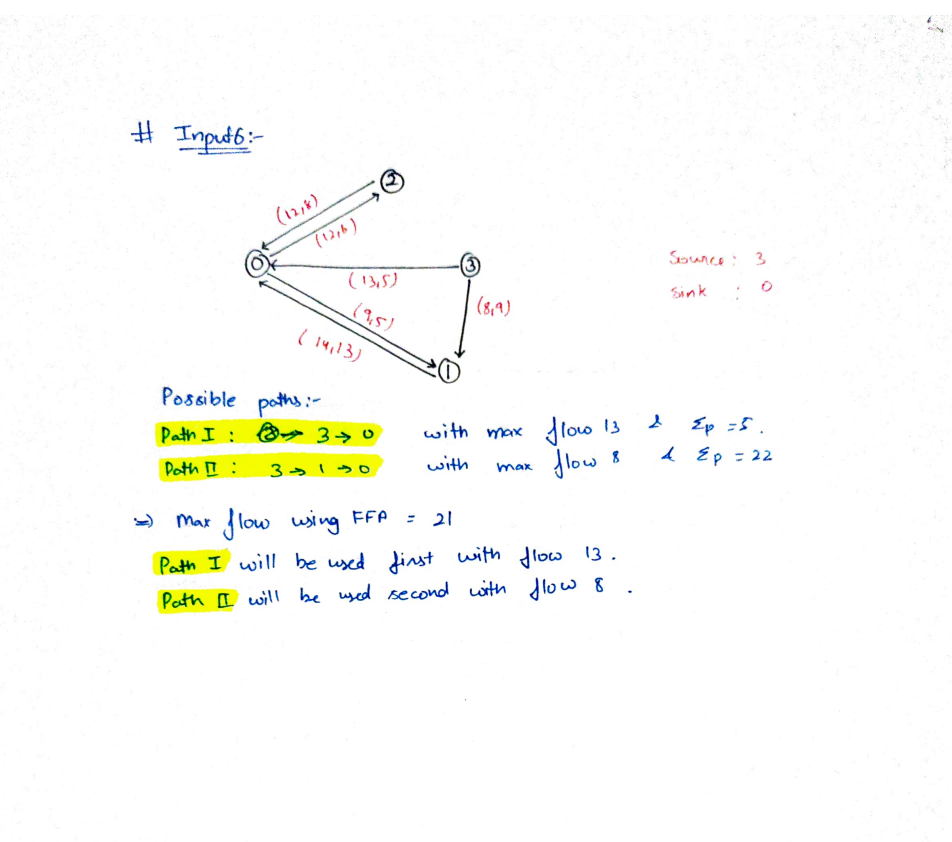 # Input6:-
2
(12,8)
(12,6)
0
3
(13,5)
Source : 3
Sink : 0
(9,5)
(8,9)
(14,13)
1
Possible paths:-
Path I : 3 → 0 with max flow 13 & Σp = 5.
Path II : 3 → 1 → 0 with max flow 8 & Σp = 22
⇒ Max flow using FFA = 21
Path I will be used first with flow 13.
Path II will be used second with flow 8.